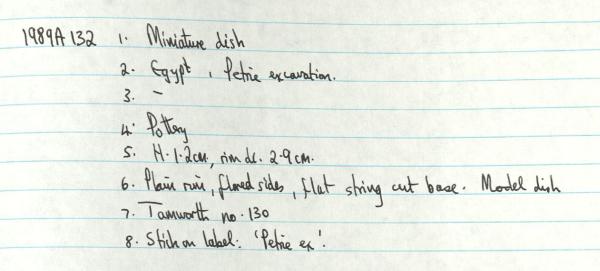 1989A132 1. Miniature dish
2. Egypt, Petrie excavation.
3. –
4. Pottery
5. H. 1.2cm, rim d. 2.9cm.
6. Plain rim, flared sides, flat string cut base. Model dish
7. Tamworth no. 130
8. Stick on label: 'Petrie ex'.